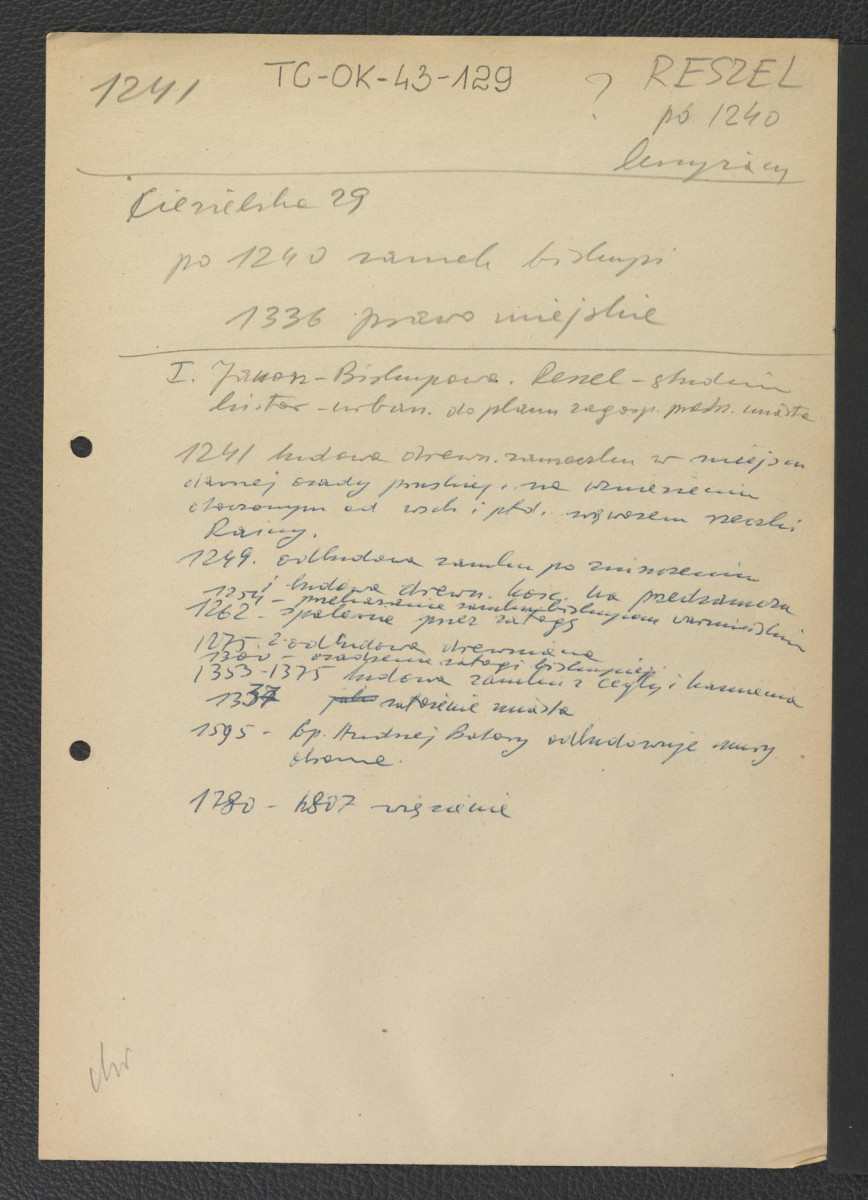 1241 TC-OK-43-129 ? RESZEL
po 1240
Ciesielska 29
po 1240 zamek biskupi
1336 prawo miejskie
I. Janosz-Biskupowa. Reszel - studium
histor-urban. do planu zagosp. przestrz. miasta
1241 budowa drewn. zameczku w miejscu
dawnej osady pruskiej, na wzniesieniu
otoczonym od wsch i płd. wąwozem rzeczki
Rainy.
1249. odbudowa zamku po zniszczeniu
i budowa drewn. kośc. na przedzamczu
1254 - przekazanie zamku biskupom warmińskim
1262 - spalenie przez załogę
1275. 2 odbudowa drewniana
1300 - osadzenie załogi biskupiej
1353-1375 budowa zamku z cegły i kamienia
1337 założenie miasta
1595 - bp. Andrzej Batory odbudowuje mury
obronne.
1780 - 1807 więzienie